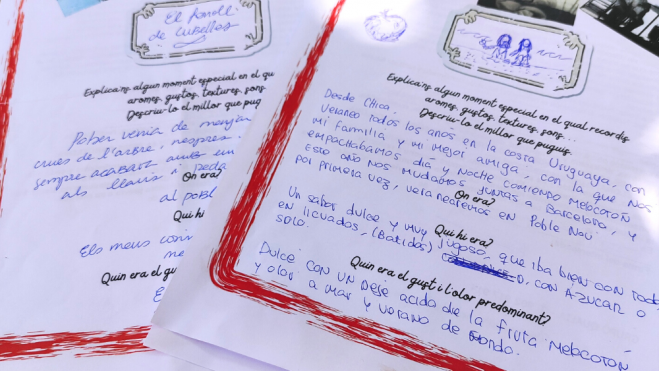 El Ranell
de Cubelles
Explica'ns algun moment especial en el qu
aromes, gustos, textures, sons
Descriu-lo el millor que pug
Poder venia de menjar
crues de l'arbre,
sempre acabava amb un
als llavis i
On era?
al pobl
Qui hi
Els meus
me
Quin era el gu
E
Explica'ns algun moment especial en el qual recordis
aromes, gustos, textures, sons...
Descriu-lo el millor que puguis.
Desde chica.
Verano todos los años en la costa Uruguaya, con
mi familia y mi mejor amiga, con la que nos
empachábamos día y noche comiendo melocotón
On era?
Este año nos mudamos juntas a Barcelona, y
por primera vez, veranearemos en Poble Nou
Qui hi era?
Un sabor dulce y muy jugoso, que iba bien con todo
en licuados, (batidos), con azúcar o
solo.
Quin era el gust i l'olor predominant?
Dulce con un deje acido de la fruta melocotón
y olor a mar y verano de fondo.